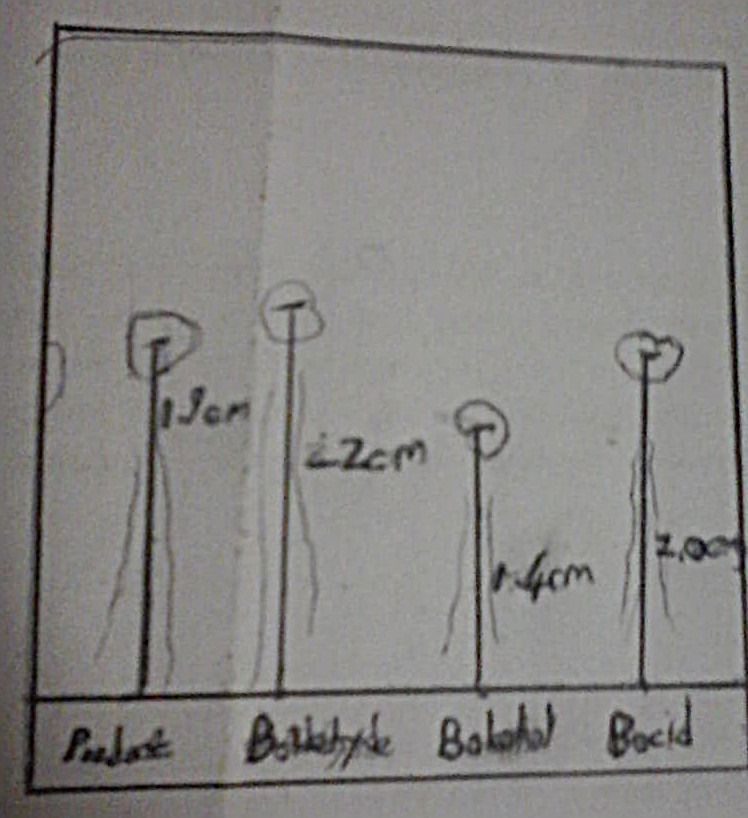 1.9cm
2.2cm
1.4cm
2.0cm
Product Baldehyde Balcohol Bacid